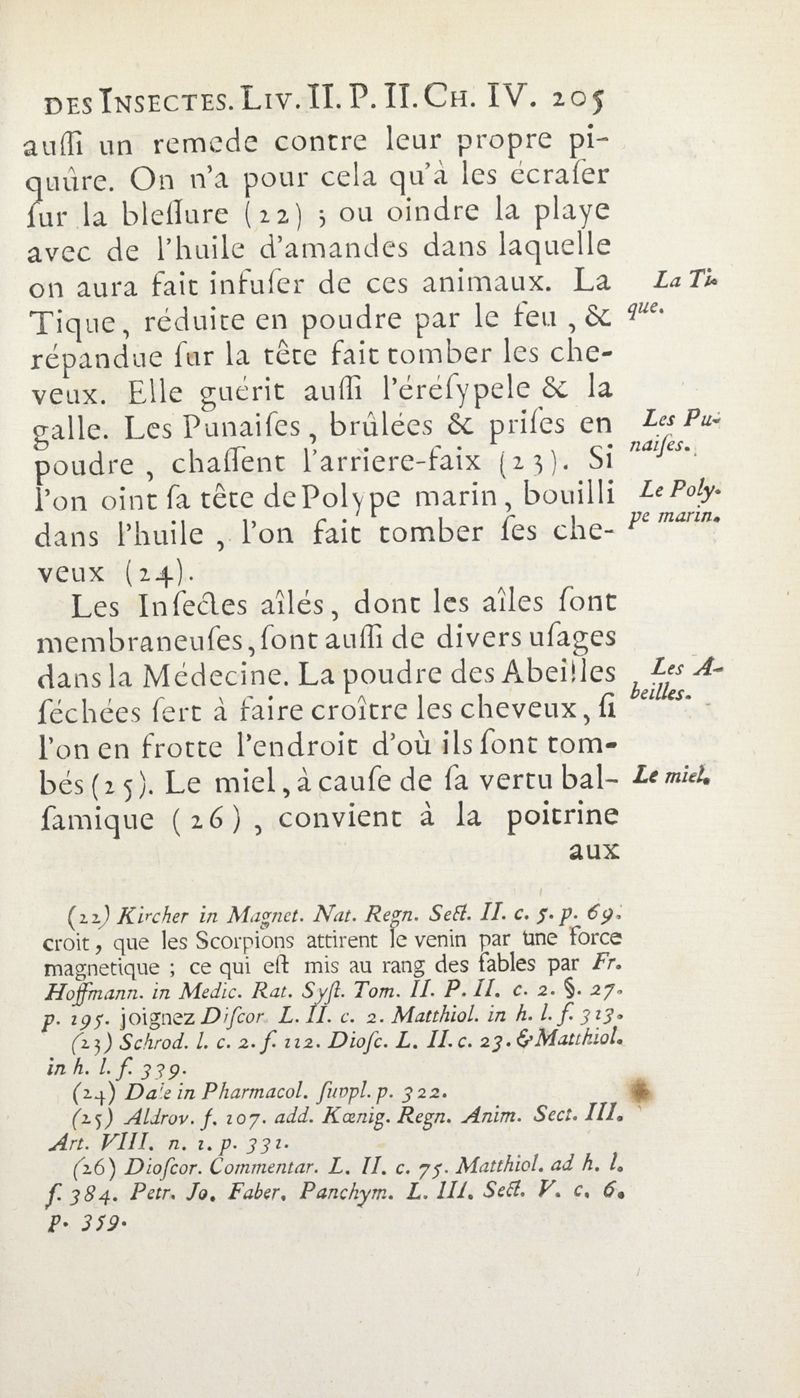 DES INSECTES. LIV. II. P. II. CH. IV. 205
auſſi un remede contre leur propre pi-
quûre. On n'a pour cela qu'à les écraſer
ſur la bleſſure (22) ; ou oindre la playe
avec de l'huile d'amandes dans laquelle
on aura fait infuſer de ces animaux. La
La Ti-
que.
Tique, réduite en poudre par le feu , &
répandue ſur la tête fait tomber les che-
veux. Elle guérit auſſi l'éréſypele & la
galle. Les Punaiſes, brûlées & priſes en
Les Pu-
naiſes.
poudre , chaſſent l'arriere-faix (23). Si
l'on oint ſa tête de Polype marin, bouilli
Le Poly-
pe marin.
dans l'huile , l'on fait tomber ſes che-
veux (24).
Les Inſectes aîlés, dont les aîles ſont
membraneuſes, ſont auſſi de divers uſages
dans la Médecine. La poudre des Abeilles
Les A-
beilles.
ſéchées ſert à faire croître les cheveux, ſi
l'on en frotte l'endroit d'où ils ſont tom-
bés (25). Le miel, à cauſe de ſa vertu bal-
Le miel.
ſamique (26) , convient à la poitrine
aux
(22) Kircher in Magnet. Nat. Regn. Sect. II. c. 5. p. 69.
croit, que les Scorpions attirent le venin par une force
magnetique ; ce qui eſt mis au rang des fables par Fr.
Hoffmann. in Medic. Rat. Syſt. Tom. II. P. II. c. 2. §. 27.
p. 195. joignez Diſcor. L. II. c. 2. Matthiol. in h. l. f. 313.
(23) Schrod. l. c. 2. f. 112. Dioſc. L. II. c. 23. & Matthiol.
in h. l. f. 339.
(24) Dale in Pharmacol. ſuppl. p. 322.
(25) Aldrov. f. 107. add. Kœnig. Regn. Anim. Sect. III.
Art. VIII. n. 1. p. 331.
(26) Dioſcor. Commentar. L. II. c. 75. Matthiol. ad h. l.
f. 384. Petr. Jo. Faber. Panchym. L. III. Sect. V. c. 6.
p. 359.